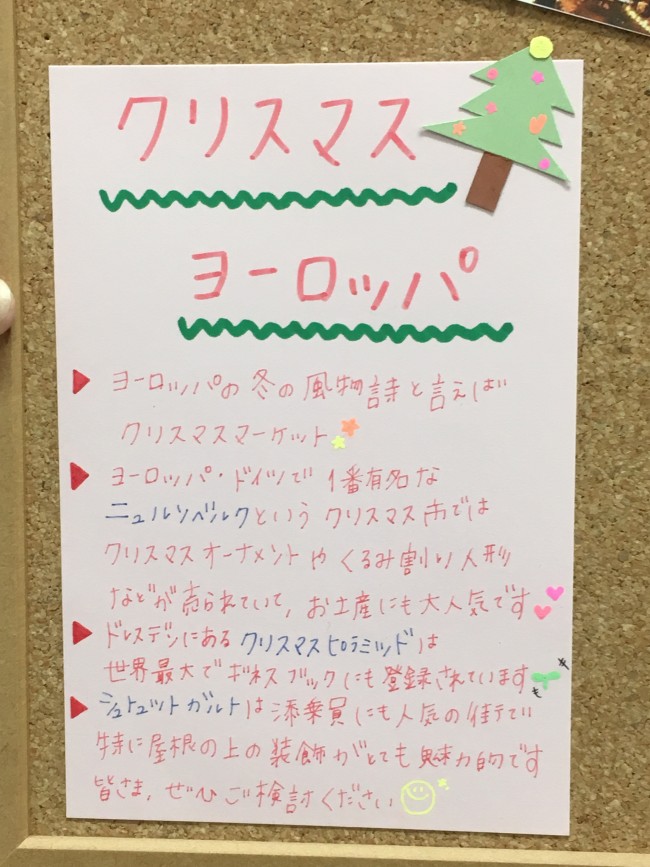 クリスマス
ヨーロッパ
ヨーロッパの冬の風物詩と言えば
クリスマスマーケット
ヨーロッパ・ドイツで1番有名な
ニュルンベルクというクリスマス市では
クリスマスオーナメントやくるみ割り人形
などが売られていて、お土産にも大人気です
ドレスデンにあるクリスマスピラミッドは
世界最大でギネスブックにも登録されています
シュトゥットガルトは添乗員にも人気の街で
特に屋根の上の装飾がとても魅力的です
皆さま、ぜひご検討ください